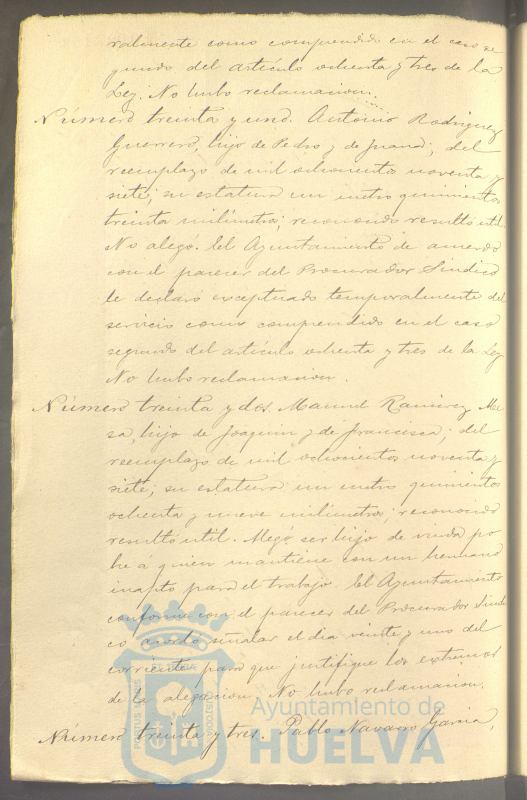 ralmente como comprendido en el caso se
gundo del artículo ochenta y tres de la
Ley. No hubo reclamacion.
Número treinta y uno. Antonio Rodriguez
Guerrero, hijo de Pedro y de Juana, del
reemplazo de mil ochocientos noventa y
siete; su estatura un metro quinientos
treinta milímetros; reconocido resultó util.
No alegó. El Ayuntamiento de acuerdo
con el parecer del Procurador Sindico
le declaró exceptuado temporalmente del
servicio como comprendido en el caso
segundo del artículo ochenta y tres de la Ley
No hubo reclamacion.
Número treinta y dos. Manuel Ramirez Me
sa, hijo de Joaquin y de Francisca; del
reemplazo de mil ochocientos noventa y
siete; su estatura un metro quinientos
ochenta y nueve milímetros; reconocido
resultó util. Alegó ser hijo de viuda po
bre á quien mantiene con un hermano
inapto para el trabajo. El Ayuntamiento
conforme con el parecer del Procurador Sindi
co acordó señalar el dia veinte y uno del
corriente para que justifique los extremos
de la alegacion. No hubo reclamacion.
Número treinta y tres. Pablo Navarro Garcia,
Ayuntamiento de
HUELVA